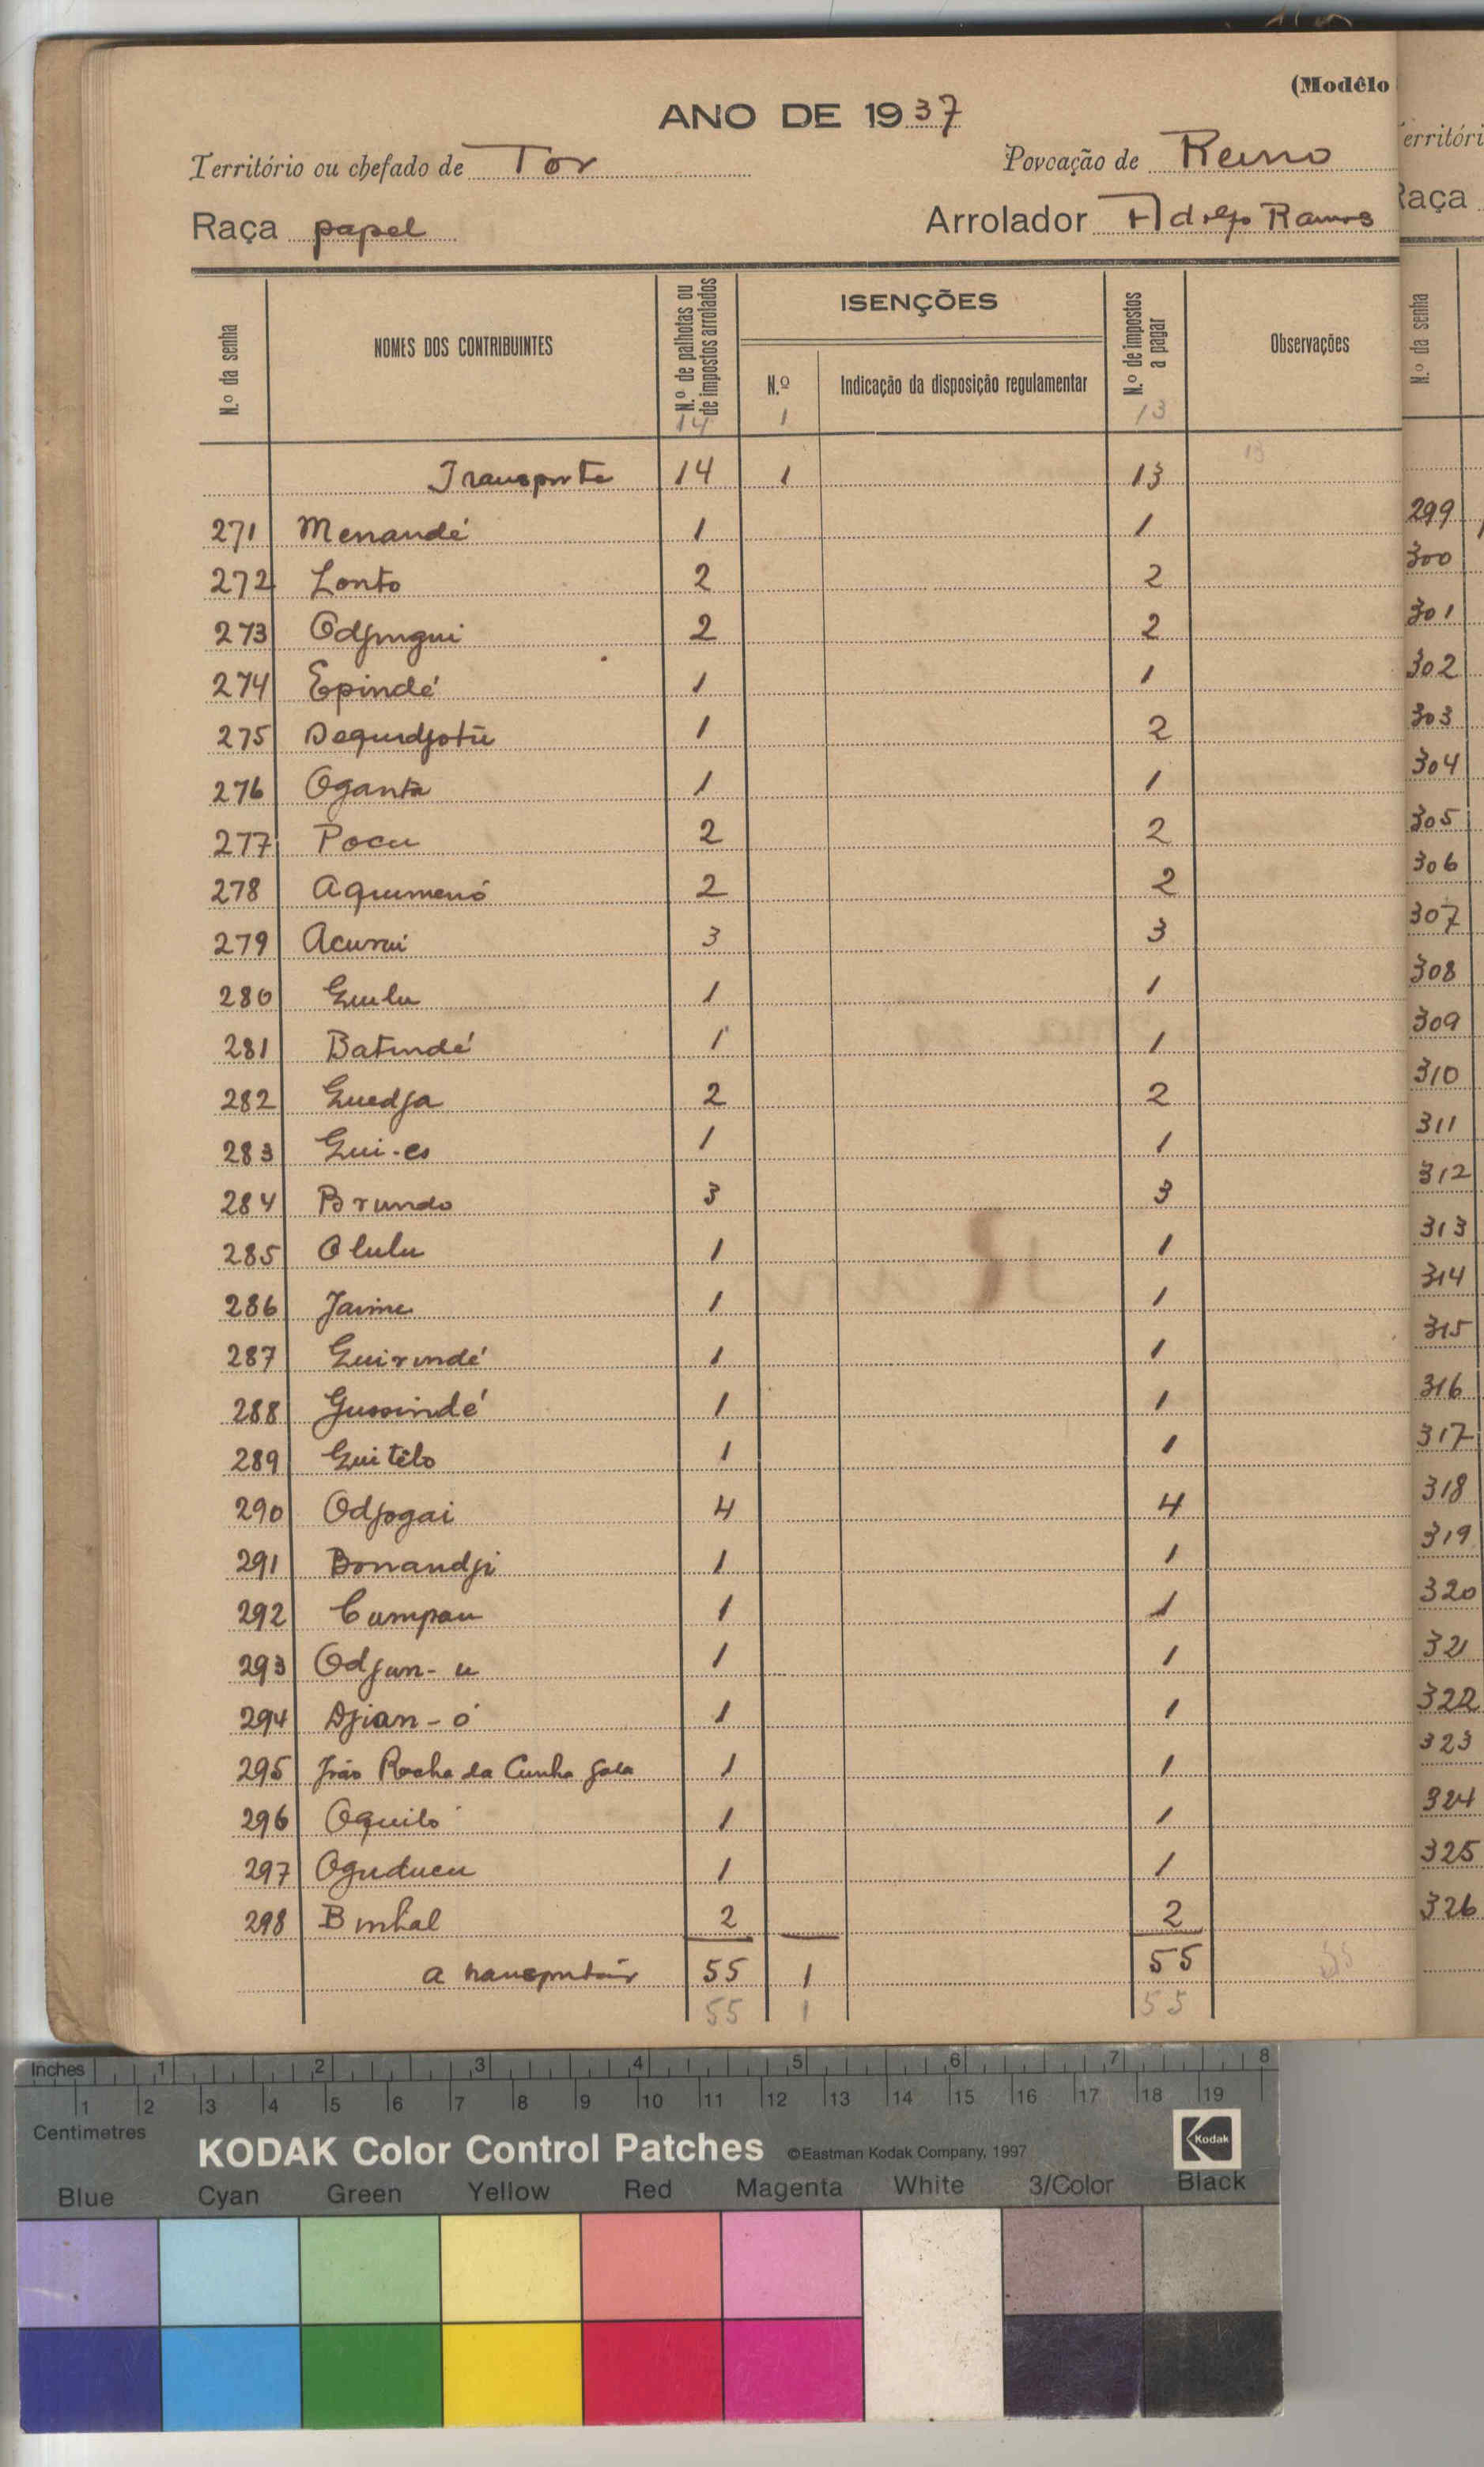 (Modêlo
ANO DE 1937
Território ou chefado de Tor Povoação de Reino
Raça papel Arrolador Adolfo Ramos
N.º da senha NOMES DOS CONTRIBUINTES N.º de palhotas ou de impostos arrolados ISENÇÕES N.º Indicação da disposição regulamentar N.º de impostos a pagar Observações
14 1 13
Transporte 14 1 13 13
271 Menandé 1 1
272 Lonto 2 2
273 Odjingui 2 2
274 Epindé 1 1
275 Dequidjotu 1 2
276 Oganta 1 1
277 Pocu 2 2
278 Aquimenó 2 2
279 Acurui 3 3
280 Guilu 1 1
281 Batindé 1 1
282 Guedja 2 2
283 Gui-es 1 1
284 Brundo 3 3
285 Olulu 1 1
286 Jaime 1 1
287 Guirindé 1 1
288 Gussindé 1 1
289 Guitêlo 1 1
290 Odjogai 4 4
291 Bonandji 1 1
292 Cumpau 1 1
293 Odjun-u 1 1
294 Djian-ó 1 1
295 João Rocha da Cunha 1 1
296 Oquiló 1 1
297 Oguducu 1 1
298 Binhal 2 2
a transportar 55 1 55 55
55 1 55
erritóri
aça
N.º da senha
299
300
301
302
303
304
305
306
307
308
309
310
311
312
313
314
315
316
317
318
319
320
321
322
323
324
325
326
Inches 1 2 3 4 5 6 7 8
1 2 3 4 5 6 7 8 9 10 11 12 13 14 15 16 17 18 19
Centimetres
KODAK Color Control Patches ©Eastman Kodak Company, 1997 Kodak
Blue Cyan Green Yellow Red Magenta White 3/Color Black